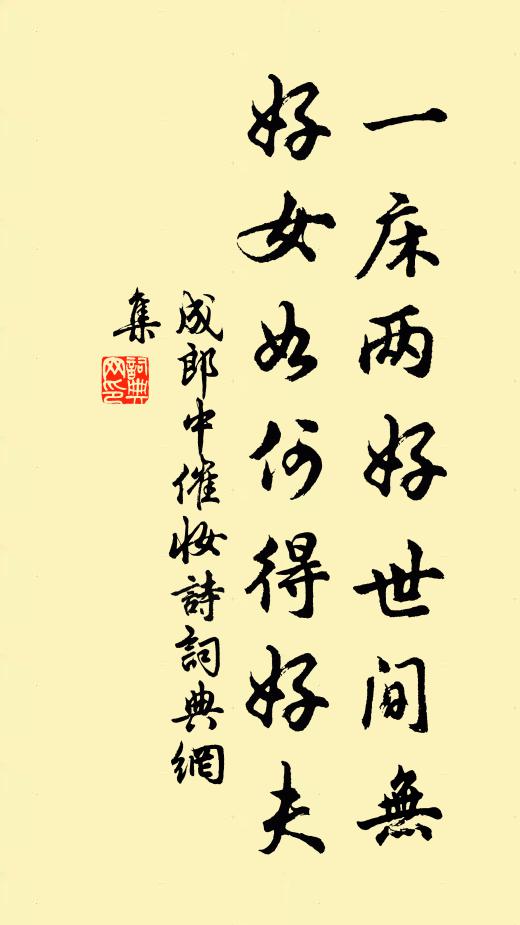 一床两好世间無
好女如何得好夫
成郎中催妆詩詞典網
集
詞典
网印